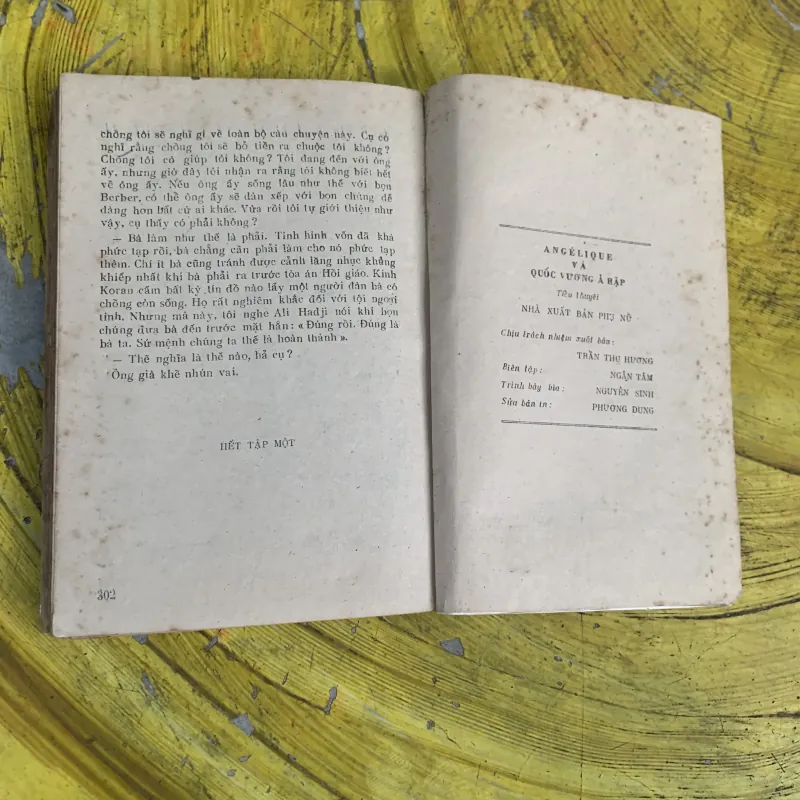 chồng tôi sẽ nghĩ gì về toàn bộ câu chuyện này. Cụ có
nghĩ rằng chồng tôi sẽ bỏ tiền ra chuộc tôi không?
Chồng tôi có giúp tôi không? Tôi đang đến với ông
ấy, nhưng giờ đây tôi nhận ra rằng tôi không biết hết
về ông ấy. Nếu ông ấy sống lâu như thế với bọn
Berber, có thể ông ấy sẽ dàn xếp với bọn chúng dễ
dàng hơn bất cứ ai khác. Vừa rồi tôi tự giới thiệu như
vậy, cụ thấy có phải không?
— Bà làm như thế là phải. Tình hình vốn đã khá
phức tạp rồi, bà chẳng cần phải làm cho nó phức tạp
thêm. Chí ít bà cũng tránh được cảnh lăng nhục khủng
khiếp nhất khi bà phải ra trước tòa án Hồi giáo. Kinh
Koran cấm bất kỳ tín đồ nào lấy một người đàn bà có
chồng còn sống. Họ rất nghiêm khắc đối với tội ngoại
tình. Nhưng mà này, tôi nghe Ali Hadji nói khi bọn
chúng đưa bà đến trước mặt hắn: « Đúng rồi. Đúng là
bà ta. Sứ mệnh chúng ta thế là hoàn thành ».
— Thế nghĩa là thế nào, hả cụ?
Ông già khẽ nhún vai.
HẾT TẬP MỘT
302
ANGÉLIQUE
VÀ
QUỐC VƯƠNG Ả RẬP
Tiểu thuyết
NHÀ XUẤT BẢN PHỤ NỮ
Chịu trách nhiệm xuất bản:
TRẦN THU HƯƠNG
Biên tập: NGÂN TÂM
Trình bày bìa: NGUYÊN SINH
Sửa bản in: PHƯƠNG DUNG